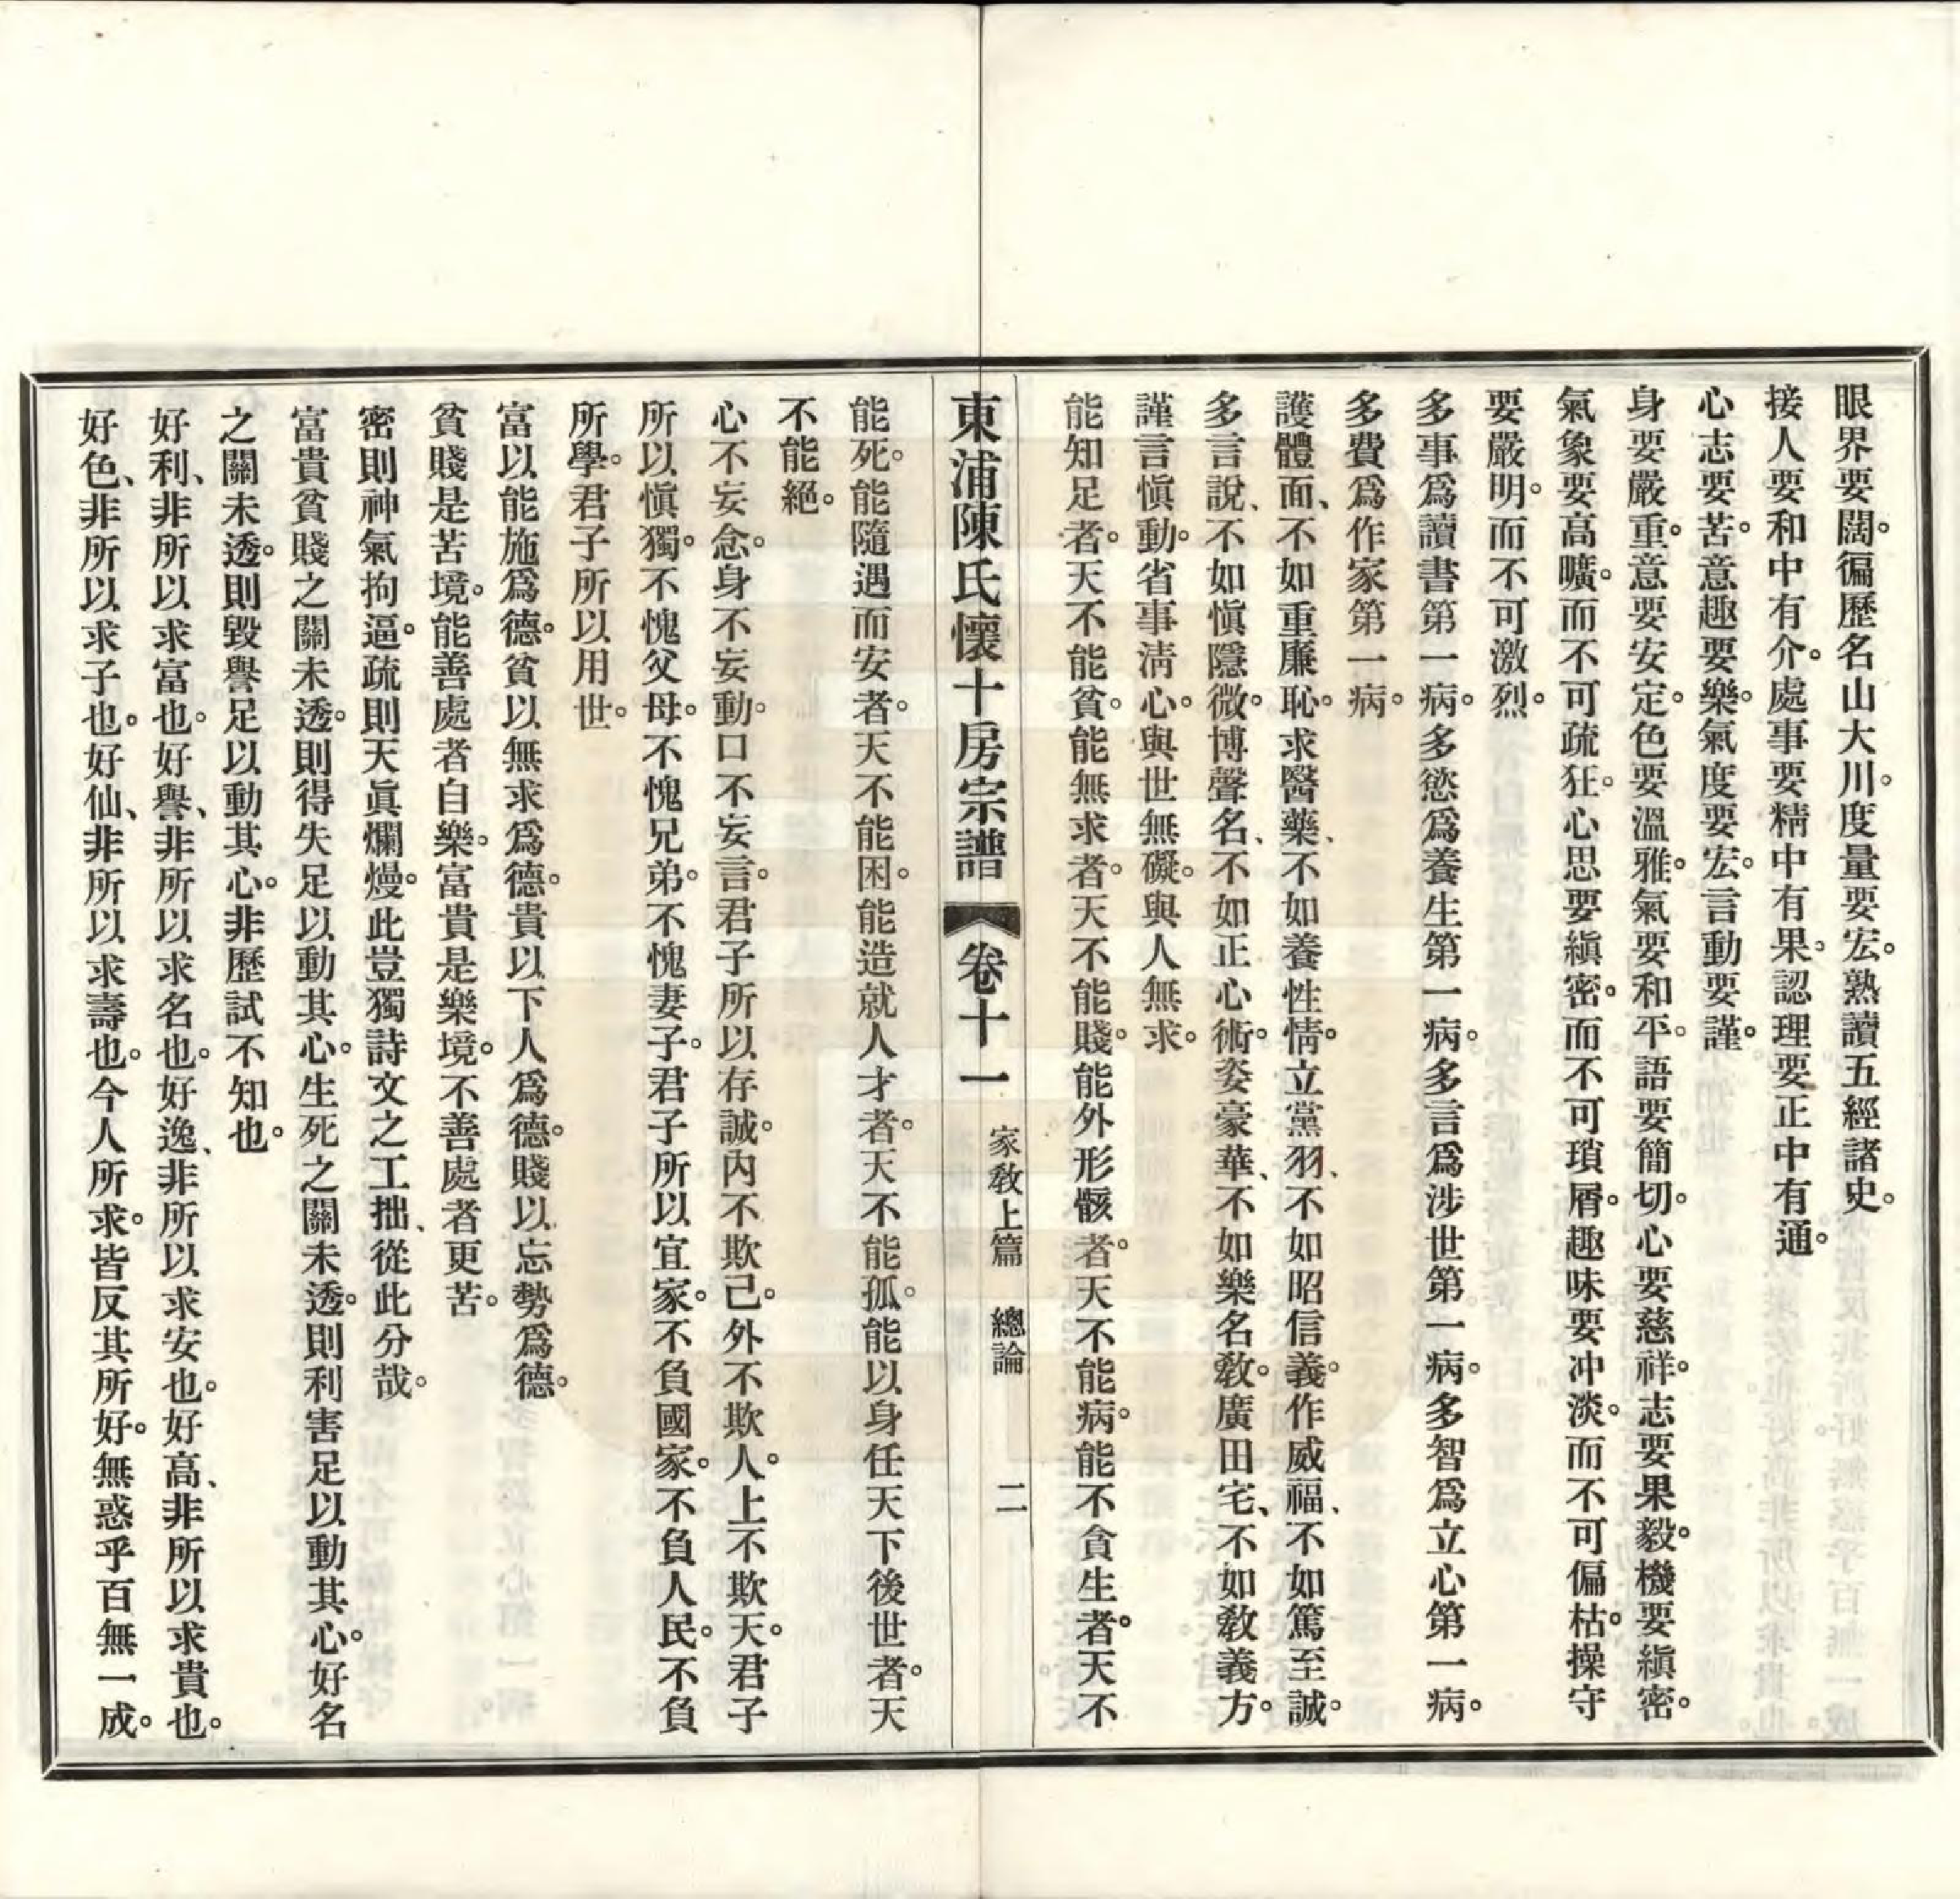 眼界要闊。徧歷名山大川。度量要宏。熟讀五經諸史。
接人要和中有介。處事要精中有果。認理要正中有通。
心志要苦。意趣要樂。氣度要宏。言動要謹。
身要嚴重。意要安定。色要溫雅。氣要和平。語要簡切。心要慈祥。志要果毅。機要縝密。
氣象要高曠。而不可疏狂。心思要縝密。而不可瑣屑。趣味要冲淡。而不可偏枯。操守
要嚴明。而不可激烈。
多事爲讀書第一病。多慾爲養生第一病。多言爲涉世第一病。多智爲立心第一病。
多費爲作家第一病。
護體面、不如重廉恥。求醫藥、不如養性情。立黨羽、不如昭信義。作威福、不如篤至誠。
多言說、不如愼隱微。博聲名、不如正心術。姿豪華、不如樂名敎。廣田宅、不如敎義方。
謹言愼動。省事淸心。與世無礙。與人無求。
能知足者。天不能貧。能無求者。天不能賤。能外形骸者。天不能病。能不貪生者。天不
東浦陳氏懷十房宗譜 卷十一 家敎上篇 總論 二
能死。能隨遇而安者。天不能困。能造就人才者。天不能孤。能以身任天下後世者。天
不能絕。
心不妄念。身不妄動。口不妄言。君子所以存誠。內不欺己。外不欺人。上不欺天。君子
所以愼獨。不愧父母。不愧兄弟。不愧妻子。君子所以宜家。不負國家。不負人民。不負
所學。君子所以用世。
富以能施爲德。貧以無求爲德。貴以下人爲德。賤以忘勢爲德。
貧賤是苦境。能善處者自樂。富貴是樂境。不善處者更苦。
密則神氣拘逼。疏則天眞爛熳。此豈獨詩文之工拙、從此分哉。
富貴貧賤之關未透。則得失足以動其心。生死之關未透。則利害足以動其心。好名
之關未透。則毀譽足以動其心。非歷試不知也。
好利、非所以求富也。好譽、非所以求名也。好逸、非所以求安也。好高、非所以求貴也。
好色、非所以求子也。好仙、非所以求壽也。今人所求。皆反其所好。無惑乎百無一成。